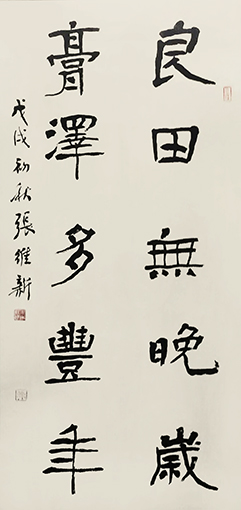 良田無晚歲
膏澤多豐年
戊戌初秋張維新